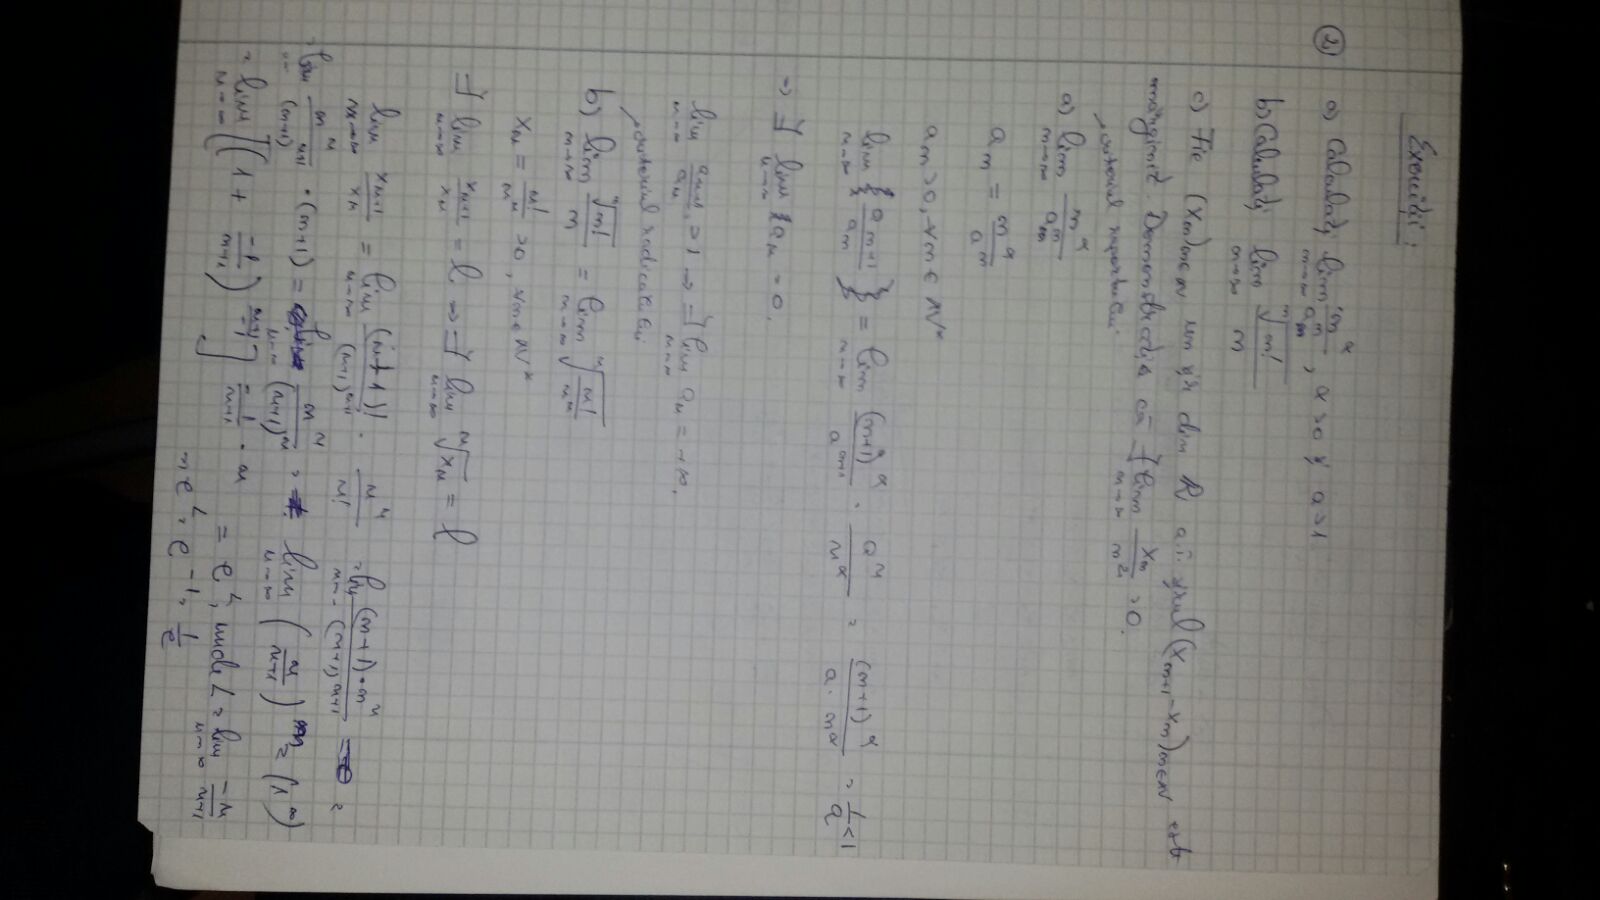 Exerciții:
② a) Calculați lim n→∞ n^α/a^n, α>0 și a>1
b) Calculați lim n→∞ ⁿ√n!/n
c) Fie (xn)n∈N un șir din R a.î. șirul (xn+1 - xn)n∈N este
mărginit. Demonstrați că ∃ lim n→∞ xn/n² = 0.
a) lim n→∞ n^α/a^n
criteriul raportului
an = n^α/a^n
an>0, ∀n∈N*
lim n→∞ {an+1/an} = lim n→∞ (n+1)^α/a^(n+1) · a^n/n^α = (n+1)^α/(a·n^α) = 1/a <1
⇒ ∃ lim n→∞ an = 0.
lim n→∞ an+1/an > 1 ⇒ ∃ lim n→∞ an = +∞.
criteriul radicalului
b) lim n→∞ ⁿ√n!/n = lim n→∞ ⁿ√(n!/n^n)
xn = n!/n^n >0, ∀n∈N*
∃ lim n→∞ xn+1/xn = l ⇒ ∃ lim n→∞ ⁿ√xn = l
lim n→∞ xn+1/xn = lim n→∞ (n+1)!/(n+1)^(n+1) · n^n/n! = lim n→∞ (n+1)·n^n/(n+1)^(n+1) =
= lim n^n/(n+1)^(n+1) · (n+1) = lim n→∞ n^n/(n+1)^n = lim n→∞ (n/(n+1))^n = (1^∞)
= lim n→∞ [(1 + -1/(n+1))^((n+1)/-1)]^(-1/(n+1) · n) = e^L, unde L = lim n→∞ -n/(n+1)
= e^L = e^-1 = 1/e